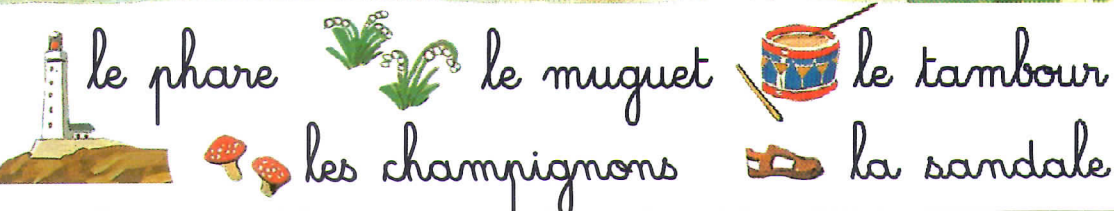 le phare le muguet le tambour
les champignons la sandale